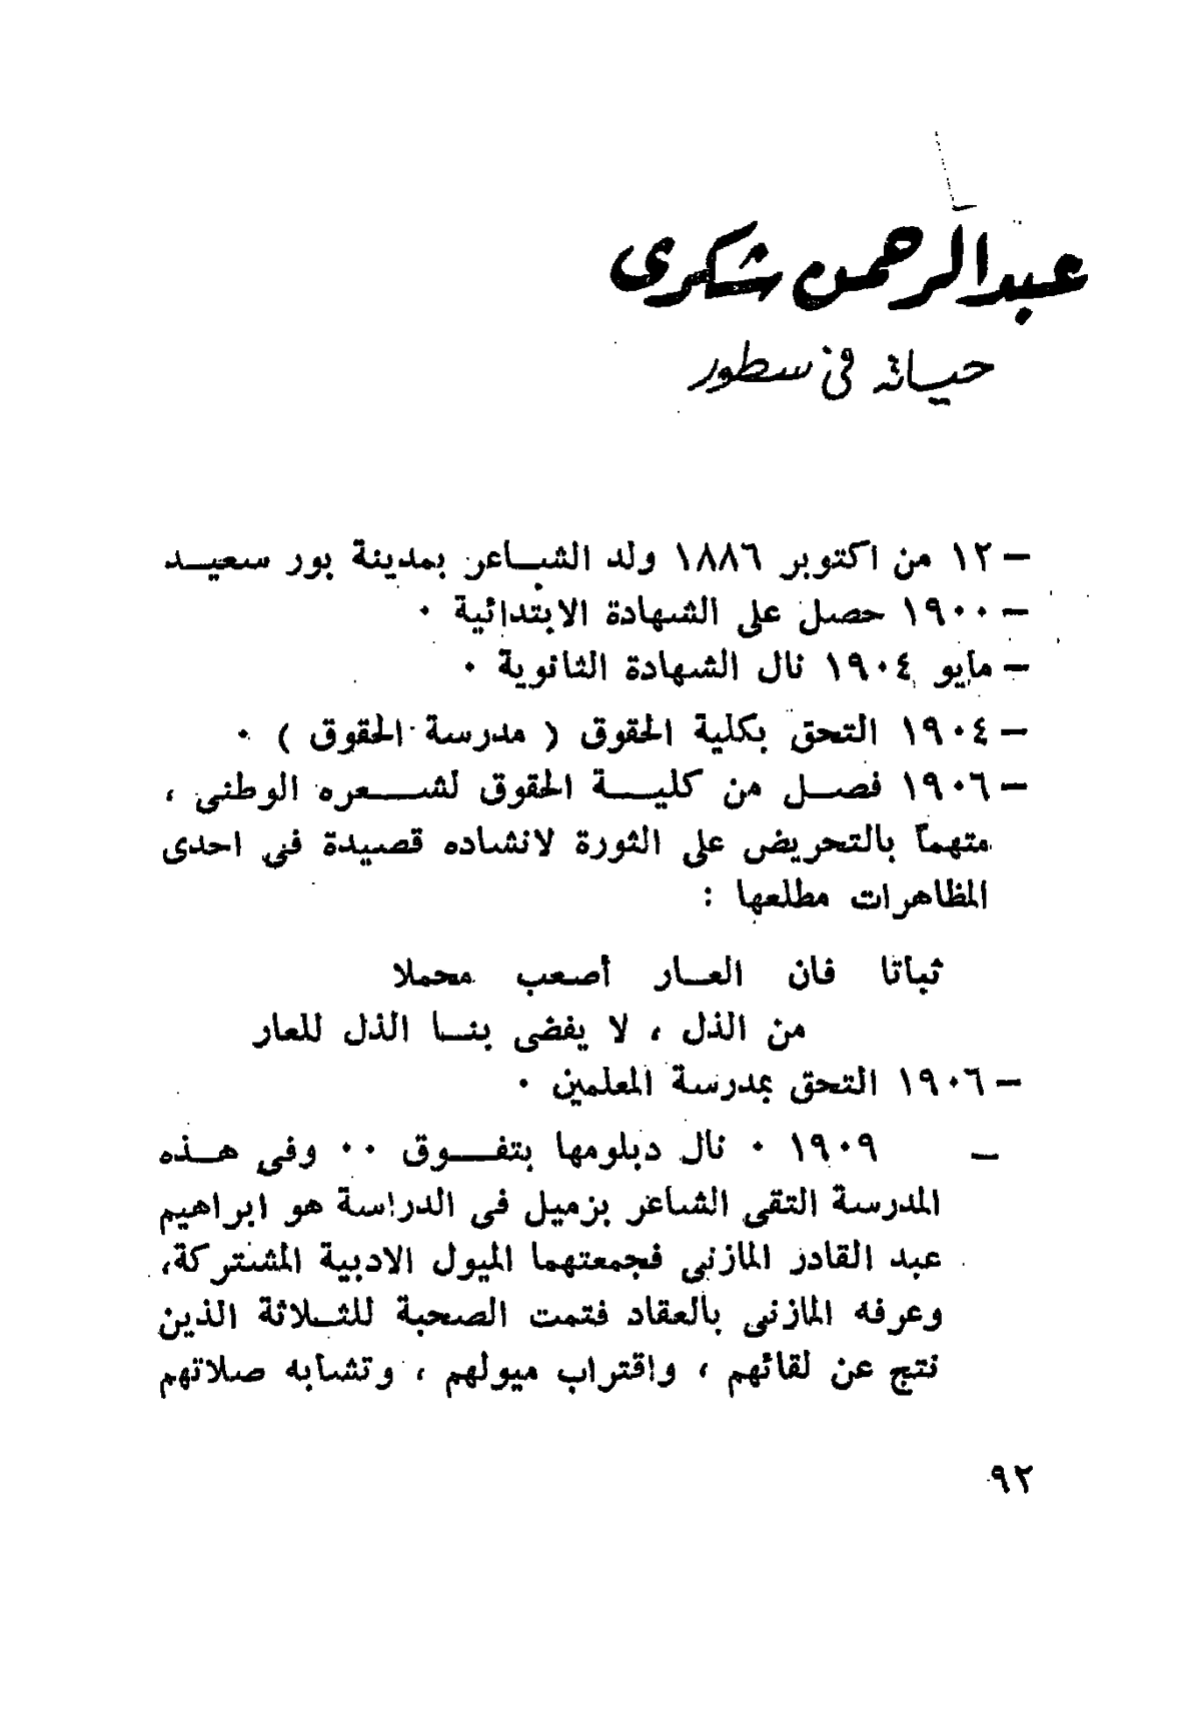 عبدالرحمن شكرى
حياته فى سطور
– ١٢ من اكتوبر ١٨٨٦ ولد الشاعر بمدينة بور سعيد
– ١٩٠٠ حصل على الشهادة الابتدائية ٠
– مايو ١٩٠٤ نال الشهادة الثانوية ٠
– ١٩٠٤ التحق بكلية الحقوق ( مدرسة الحقوق ) ٠
– ١٩٠٦ فصل من كلية الحقوق لشعره الوطنى ،
متهما بالتحريض على الثورة لانشاده قصيدة فى احدى
المظاهرات مطلعها :
ثباتا فان العار أصعب محملا
من الذل ، لا يفضى بنا الذل للعار
– ١٩٠٦ التحق بمدرسة المعلمين ٠
– ١٩٠٩ ٠ نال دبلومها بتفوق ٠٠ وفى هذه
المدرسة التقى الشاعر بزميل فى الدراسة هو ابراهيم
عبد القادر المازنى فجمعتهما الميول الادبية المشتركة،
وعرفه المازنى بالعقاد فتمت الصحبة للثلاثة الذين
نتج عن لقائهم ، واقتراب ميولهم ، وتشابه صلاتهم
٩٢